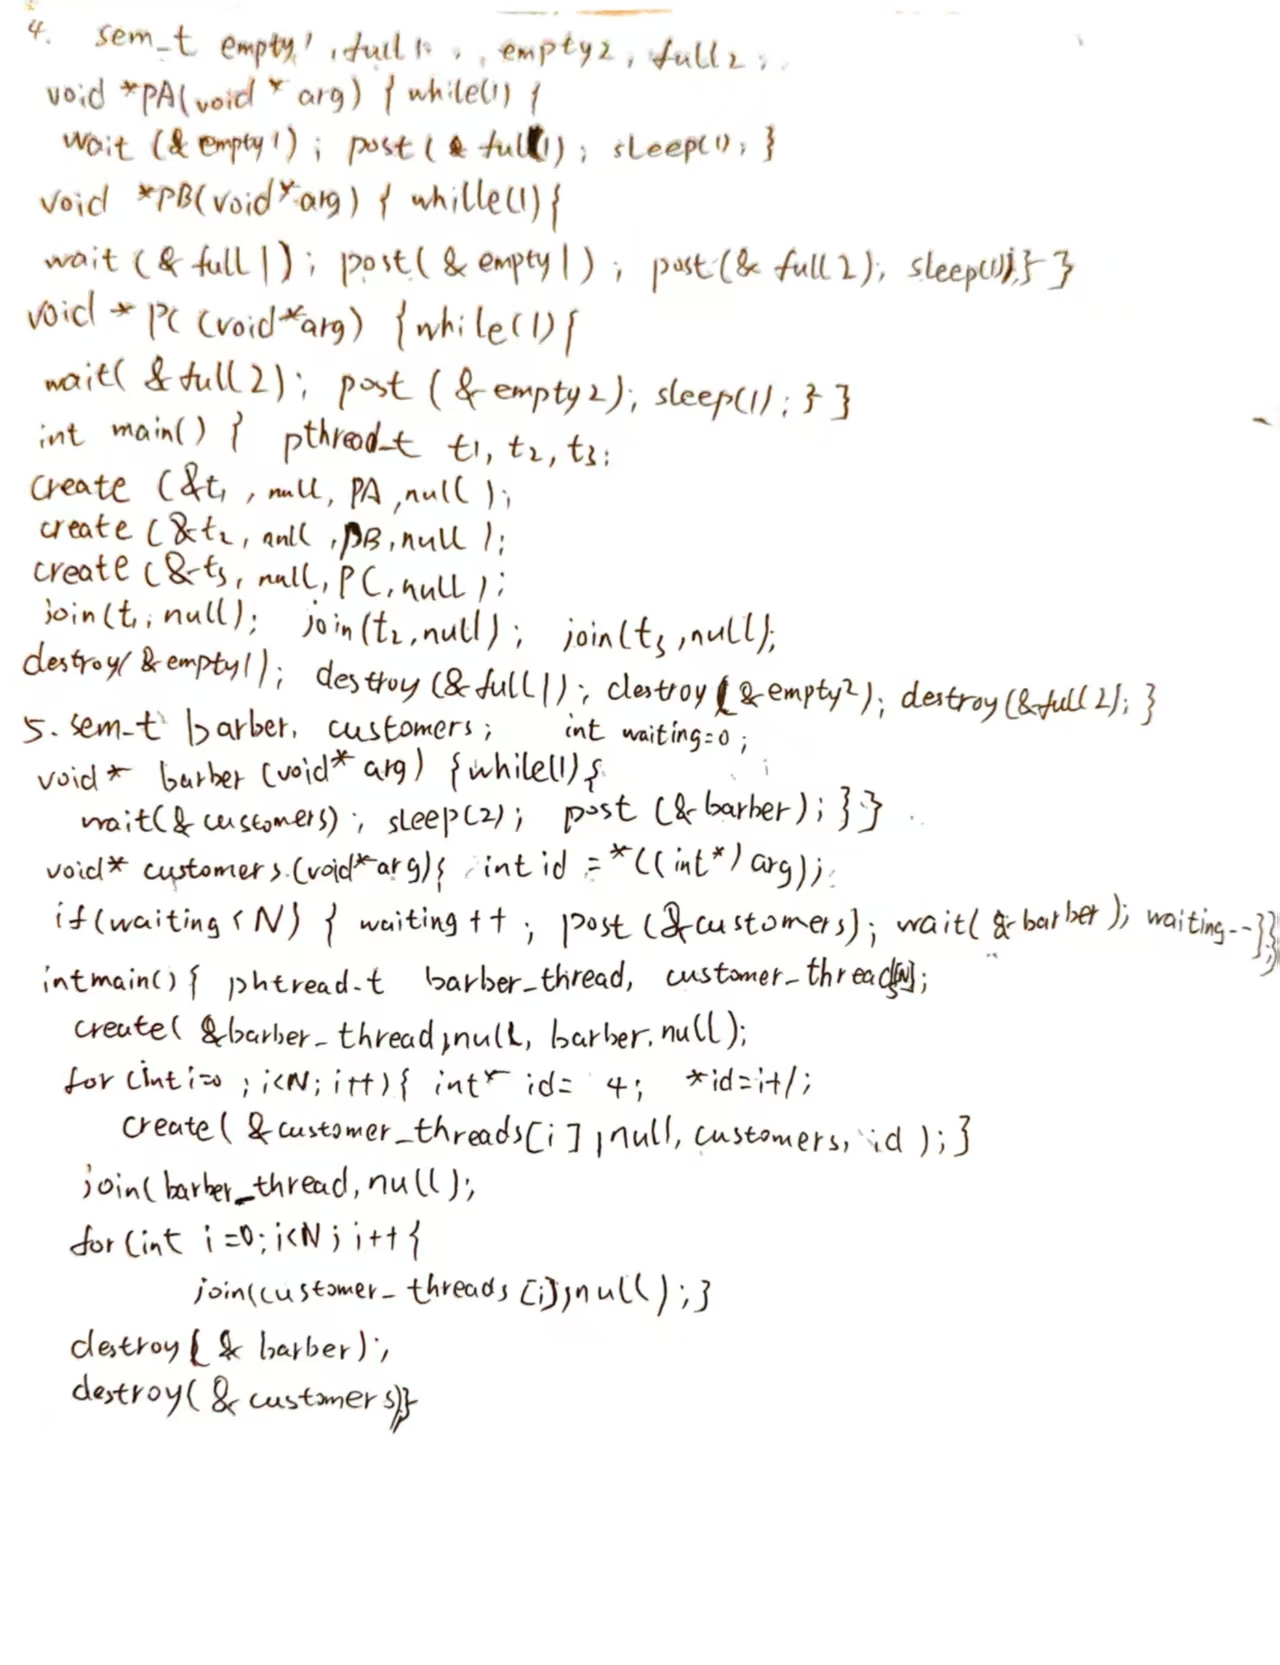 4. sem_t empty1, full1, empty2, full2;
void *PA(void * arg) { while(1) {
wait (& empty1); post (& full1); sleep(1); }
void *PB(void*arg) { whille(1){
wait (& full1); post( & empty1); post(& full2); sleep(1);} }
void * PC (void*arg) {while(1){
wait( & full2); post (& empty2); sleep(1); } }
int main() { pthread_t t1, t2, t3;
create (&t1, null, PA, null);
create (&t2, null, PB, null );
create (&t3, null, PC, null );
join(t1, null); join(t2, null); join(t3, null);
destroy(&empty1); destroy (&full1); destroy (&empty2); destroy(&full2); }
5. sem_t barber, customers; int waiting=0;
void* barber (void* arg) {while(1){
wait(& customers); sleep(2); post (& barber); } }
void* customers (void*arg){ int id = *((int*) arg);
if(waiting < N) { waiting++; post (&customers); wait( & barber); waiting--}}
int main() { phtread_t barber_thread, customer_threads[N];
create( &barber_thread, null, barber, null);
for (int i=0; i<N; i++) { int* id= 4; *id=i+1;
create( &customer_threads[i], null, customers, id ); }
join( barber_thread, null);
for (int i=0; i<N; i++ {
join(customer_threads [i], null); }
destroy( & barber);
destroy( & customers)}